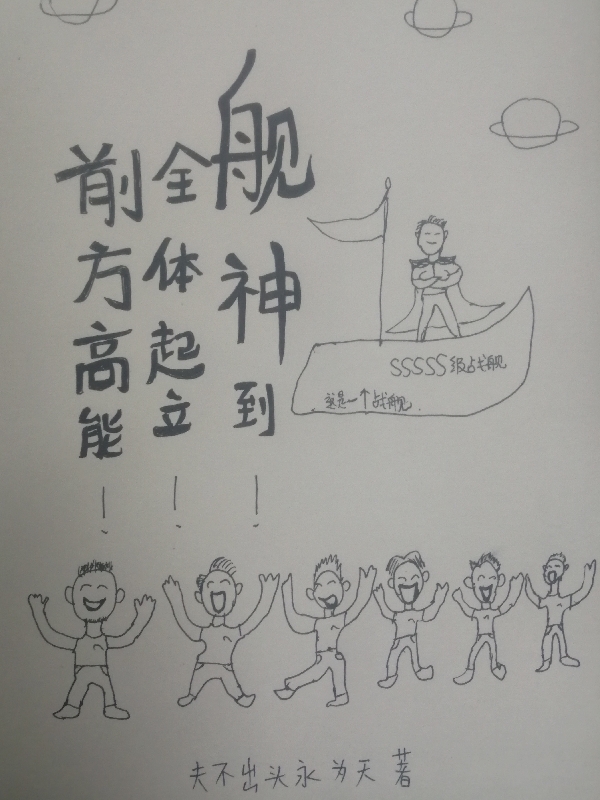 前方高能！
全体起立！
舰神到！
SSSSS级战舰
这是一个战舰.
夫不出头永为天 著